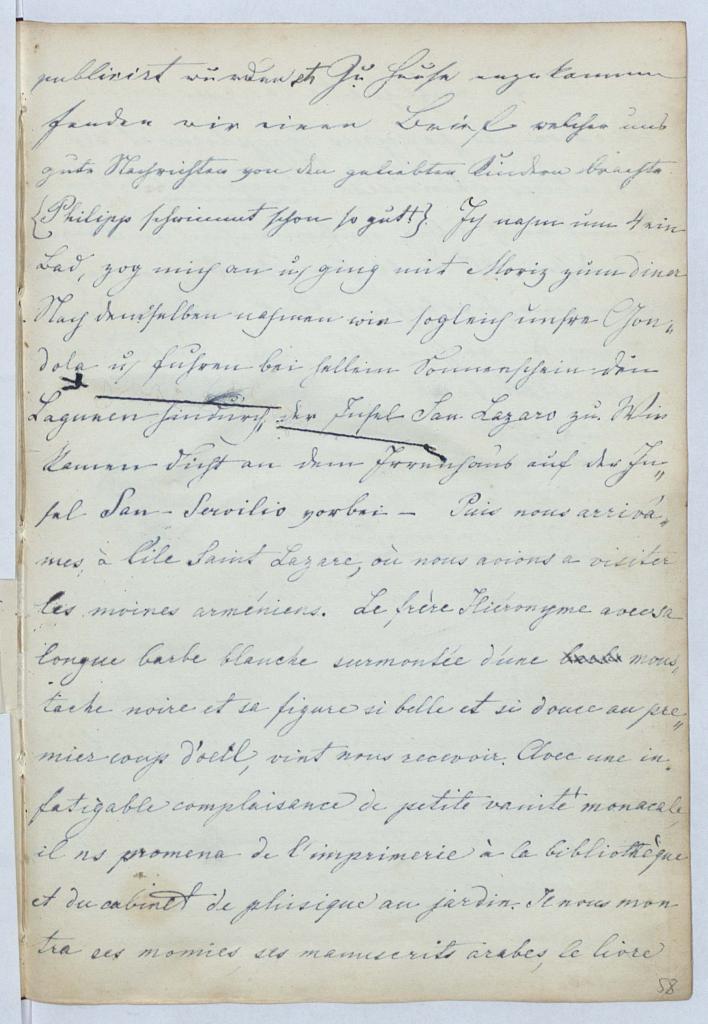 publicirt wurden. Zu Hause angekommen
fanden wir einen Brief welcher uns
gute Nachrichten von den geliebten Kindern brachte
{Philipp schwimmt schon so gut!}. Ich nahm um 4 ein
Bad, zog mich an u. ging mit Moriz zum diner
Nach demselben nahmen wir sogleich unsre Gon„
dola u. fuhren bei hellem Sonnenschein den
Lagunen hindurch, der Insel San Lazaro zu. Wir
kamen dicht an dem Irrenhaus auf der In„
sel San-Servilio vorbei — Puis nous arrivâ„
mes, à l'ile Saint Lazare, où nous avions a visiter
les moines arméniens. Le frère Hiéronyme avec sa
longue barbe blanche surmontée d'une mous„
tache noire et sa figure si belle et si douce au pre„
mier coup d'oeil, vint nous recevoir. Avec une in„
fatigable complaisance de petite vanité monacale,
il ns promena de l'imprimerie à la bibliothèque
et du cabinet de phisique au jardin. Il nous mon
tra ses momies, ses manuscrits arabes, le livre
58